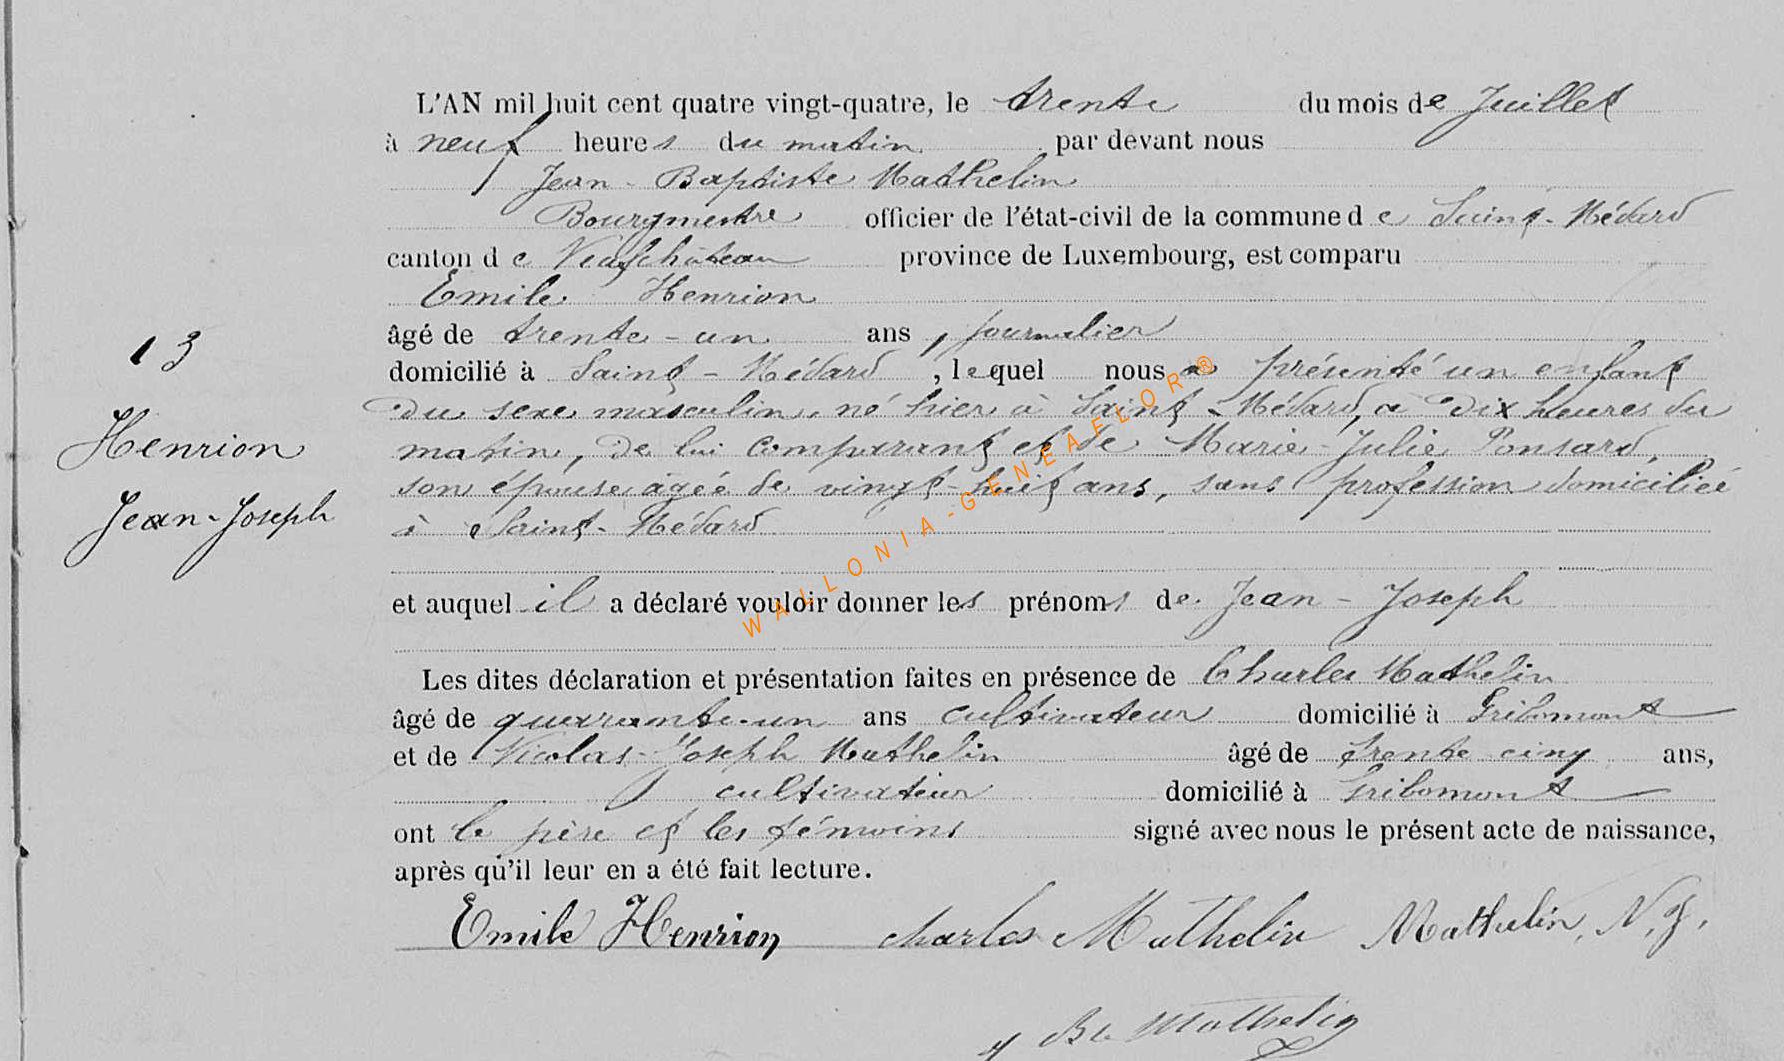 L'AN mil huit cent quatre vingt-quatre, le trente du mois de Juillet
à neuf heures du matin par devant nous
Jean-Baptiste Mathelin
Bourgmestre officier de l'état-civil de la commune de Saint-Médard
canton de Neufchâteau province de Luxembourg, est comparu
Emile Henrion
âgé de trente-un ans, journalier
13
domicilié à Saint-Médard, lequel nous a présenté un enfant
du sexe masculin, né hier à Saint-Médard, à dix heures du
Henrion
matin, de lui comparant et de Marie-Julie Ponsard,
son épouse âgée de vingt-huit ans, sans profession domiciliée
Jean-Joseph
à Saint-Médard
et auquel il a déclaré vouloir donner les prénoms de Jean-Joseph
Les dites déclaration et présentation faites en présence de Charles Mathelin
âgé de quarante-un ans cultivateur domicilié à Gribomont
et de Nicolas-Joseph Mathelin âgé de trente cinq ans,
cultivateur domicilié à Gribomont
ont le père et les témoins signé avec nous le présent acte de naissance,
après qu'il leur en a été fait lecture.
Emile Henrion Charles Mathelin Mathelin, N. J.
J Bte Mathelin
WALLONIA-GENEAELOR®